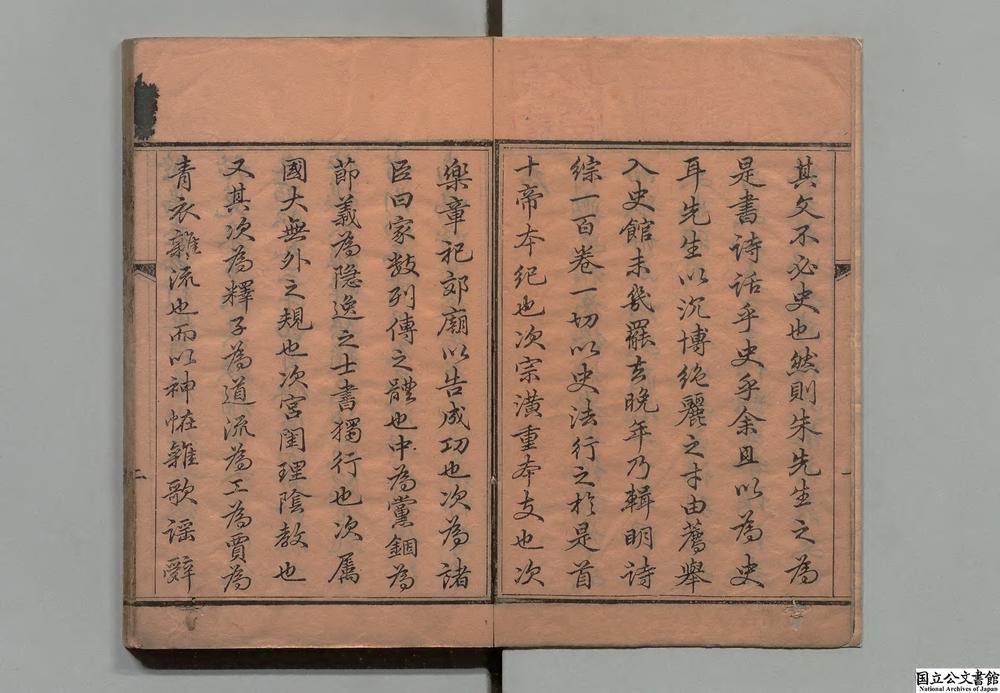 其文不必史也然則朱先生之為
是書詩話乎史乎余且以為史
耳先生以沉博絶麗之才由薦舉
入史館未㡬罷去晚年乃輯明詩
綜一百卷一切以史法行之於是首
十帝本紀也次宗潢重本支也次
樂章祀郊廟以告成功也次為諸
臣曰家數列傳之體也中為黨錮為
節義為隐逸之士書獨行也次属
國大無外之規也次宮闈理陰教也
又其次為釋子為道流為工為賈為
青衣雜流也而以神怪雜歌謡辭
一
二
国立公文書館
National Archives of Japan